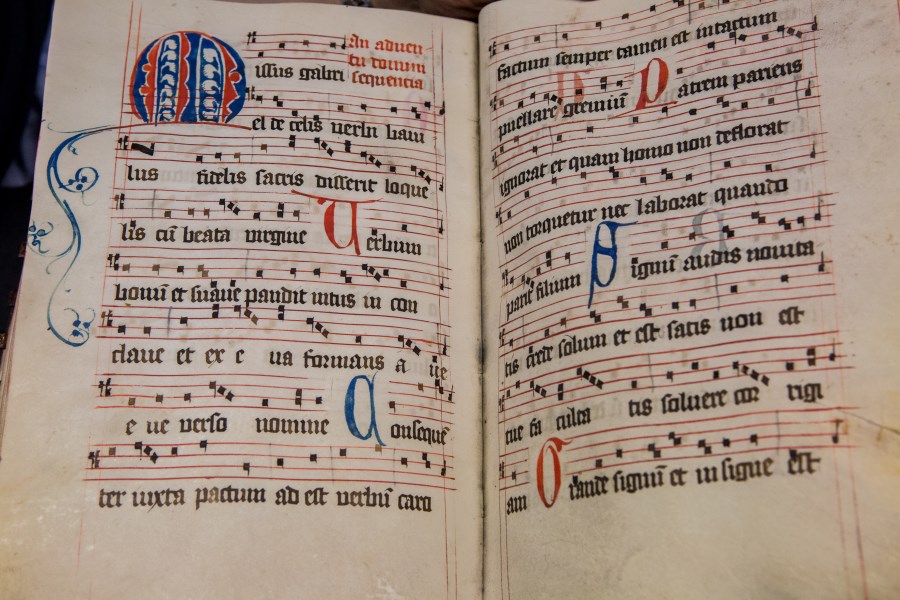 In aduen
tu domini
sequencia
M issus gabri
el de celis verbi baiu
lus fidelis sacris disserit loque
lis cū beata virgine Uerbum
bonū et suaue pandit intus in con
claue et ex e ua formans a ue
e ue verso nomine Consequē
ter iuxta pactum ad est verbū caro
factum semper tamen est intactum
puellare gremiū Patrem pariens
ignorat et quam homo non deflorat
non torquetur nec laborat quando
parit filium Signū audis nouita
tis crede solum et est satis non est
tue fa culta tis soluere cor rigi
am Grande signū et insigne est